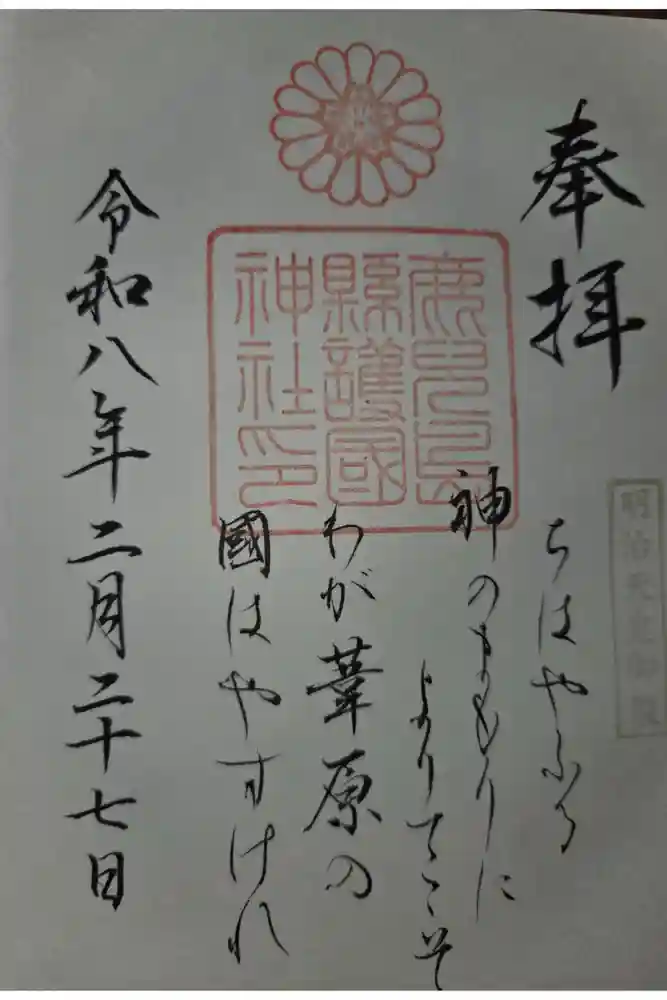 奉拝
明治天皇御製
ちはやふる
神のまもりに
よりてこそ
わが葦原の
國はやすけれ
鹿児島
縣護國
神社印
令和八年二月二十七日